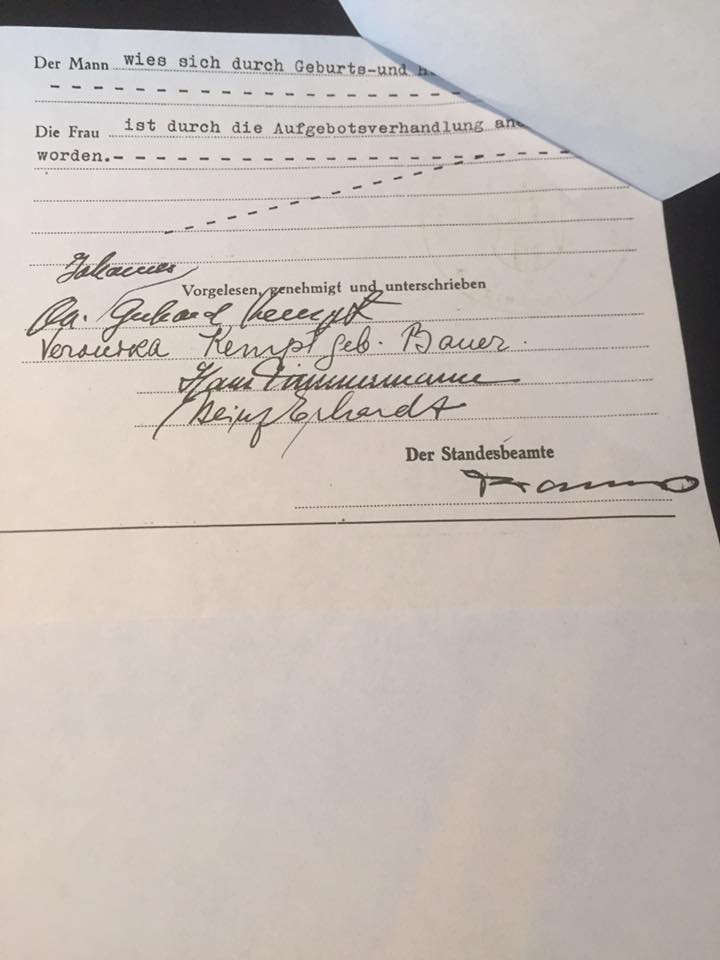 Der Mann wies sich durch Geburts-und
Die Frau ist durch die Aufgebotsverhandlung
worden.-
Johannes
Vorgelesen, genehmigt und unterschrieben
Gerhard Kempf
Veronika Kempf geb. Bauer.
Hans Timmermann
Heinz Erhardt
Der Standesbeamte